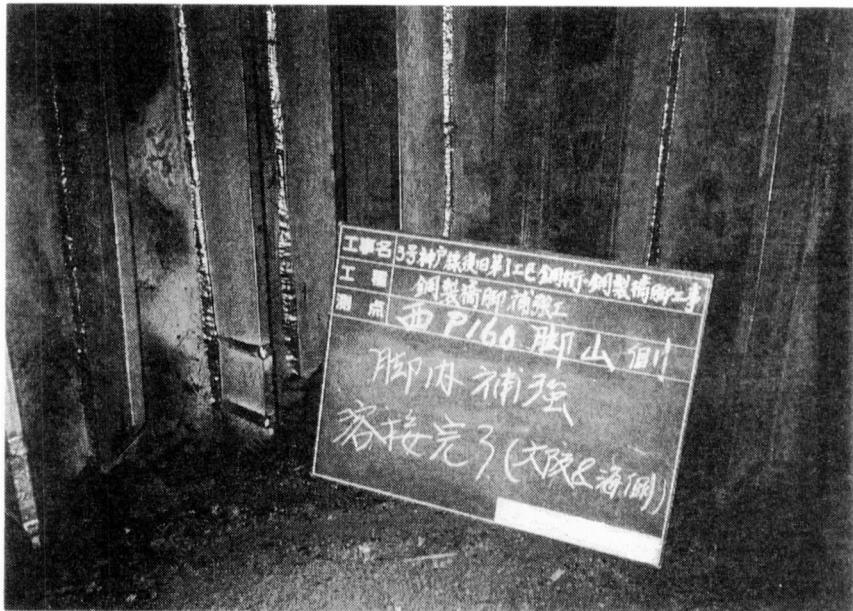 工事名 3号神戸線復旧第1工区鋼桁・鋼製橋脚工事
工種 鋼製橋脚補強工
測点 西P160 脚山側
脚内補強
溶接完了(大阪&海側)